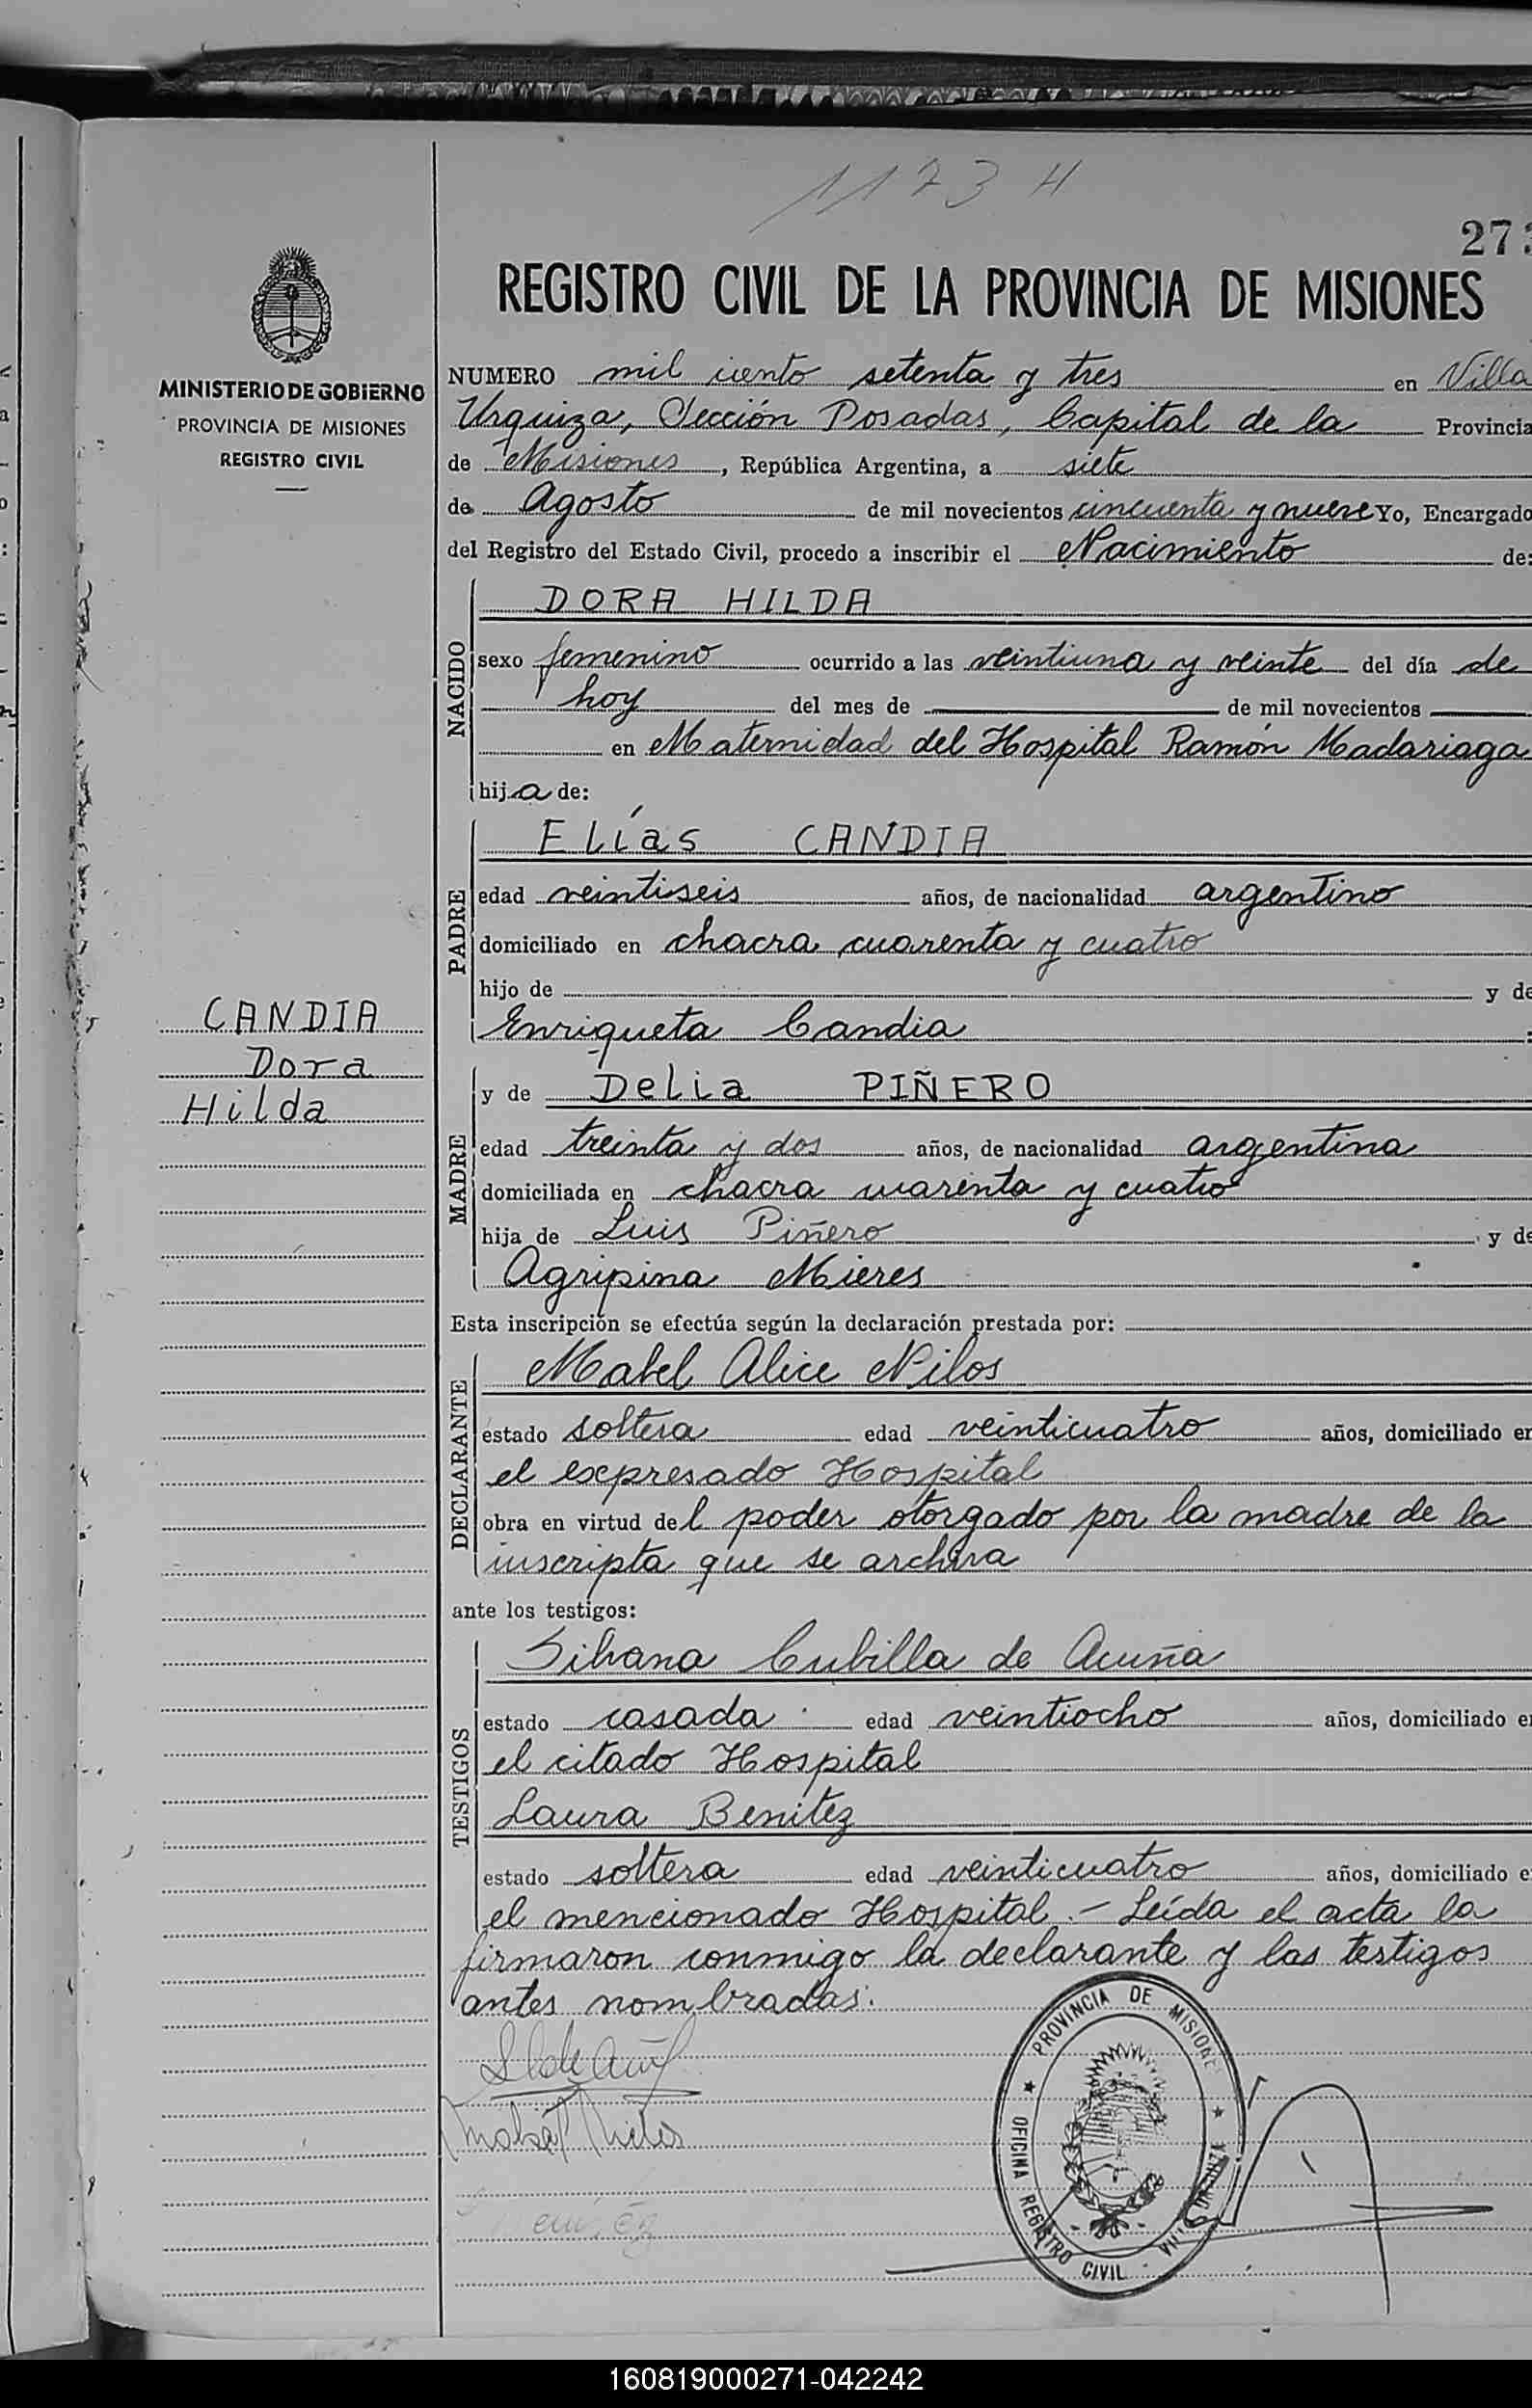 1173 H
273
REGISTRO CIVIL DE LA PROVINCIA DE MISIONES
MINISTERIO DE GOBIERNO
PROVINCIA DE MISIONES
REGISTRO CIVIL
NUMERO mil ciento setenta y tres en Villa
Urquiza, Sección Posadas, Capital de la Provincia
de Misiones, República Argentina, a siete
de Agosto de mil novecientos cincuenta y nueve Yo, Encargado
del Registro del Estado Civil, procedo a inscribir el Nacimiento de:
NACIDO
DORA HILDA
sexo femenino ocurrido a las veintiuna y veinte del día de
hoy del mes de de mil novecientos
en Maternidad del Hospital Ramón Madariaga
hija de:
PADRE
Elías CANDIA
edad veintiseis años, de nacionalidad argentino
domiciliado en chacra cuarenta y cuatro
hijo de y de
Enriqueta Candia
CANDIA
Dora
Hilda
MADRE
y de Delia PIÑERO
edad treinta y dos años, de nacionalidad argentina
domiciliada en chacra cuarenta y cuatro
hija de Luis Piñero y de
Agripina Mieres
Esta inscripción se efectúa según la declaración prestada por:
DECLARANTE
Mabel Alice Nilos
estado soltera edad veinticuatro años, domiciliado en
el expresado Hospital
obra en virtud del poder otorgado por la madre de la
inscripta que se archiva
ante los testigos:
TESTIGOS
Silvana Cubilla de Acuña
estado casada edad veintiocho años, domiciliado en
el citado Hospital
Laura Benitez
estado soltera edad veinticuatro años, domiciliado e
el mencionado Hospital.- Leída el acta la
firmaron conmigo la declarante y las testigos
antes nombradas.
PROVINCIA DE MISIONES
OFICINA REGISTRO CIVIL
160819000271-042242